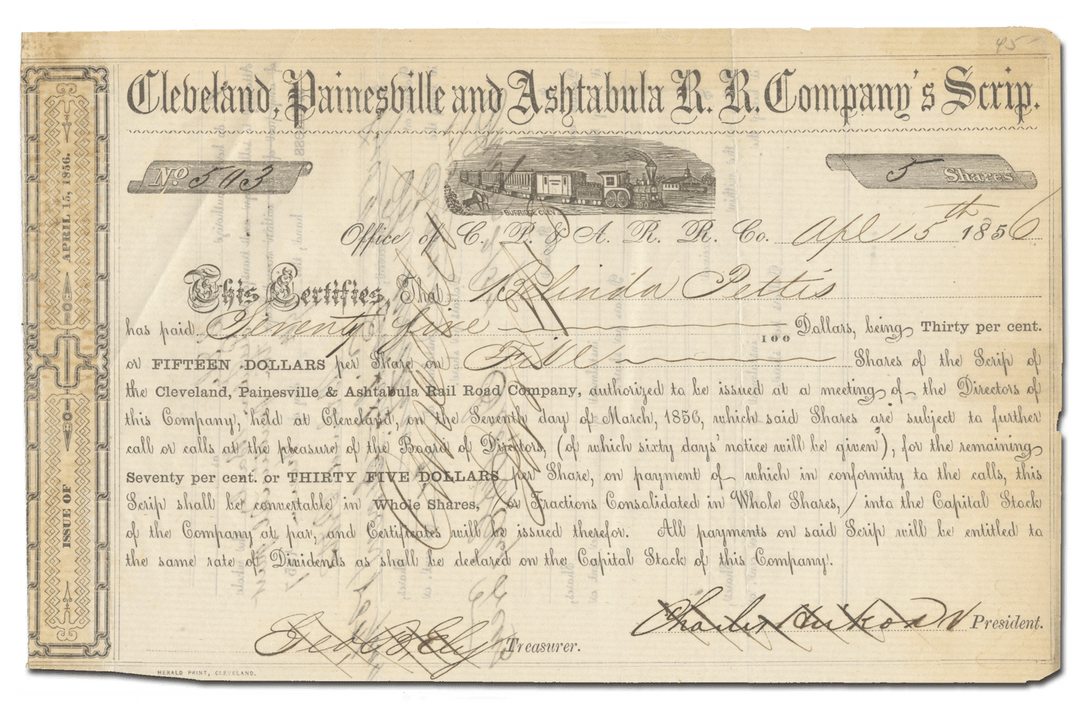 95
Cleveland, Painesville and Ashtabula R. R. Company's Scrip.
No 593
5 Shares
BURRIDGE CLEV.
Office of C. P. & A. R. R. Co. Apl 15th 1856
This Certifies, That Belinda Pettis
has paid Seventy five 100 Dollars, being Thirty per cent.
or FIFTEEN DOLLARS per Share on Five Shares of the Scrip of
the Cleveland, Painesville & Ashtabula Rail Road Company, authorized to be issued at a meeting of the Directors of
this Company, held at Cleveland, on the Seventh day of March, 1856, which said Shares are subject to further
call or calls at the pleasure of the Board of Directors, (of which sixty days' notice will be given), for the remaining
Seventy per cent. or THIRTY FIVE DOLLARS per Share, on payment of which in conformity to the calls, this
Scrip shall be convertable in Whole Shares, (or Fractions Consolidated in Whole Shares,) into the Capital Stock
of the Company at par, and Certificates will be issued therefor. All payments on said Scrip will be entitled to
the same rate of Dividends as shall be declared on the Capital Stock of this Company.
Geo B Ely Treasurer.
Charles Hickox President.
HERALD PRINT, CLEVELAND.
ISSUE OF APRIL 15, 1856.